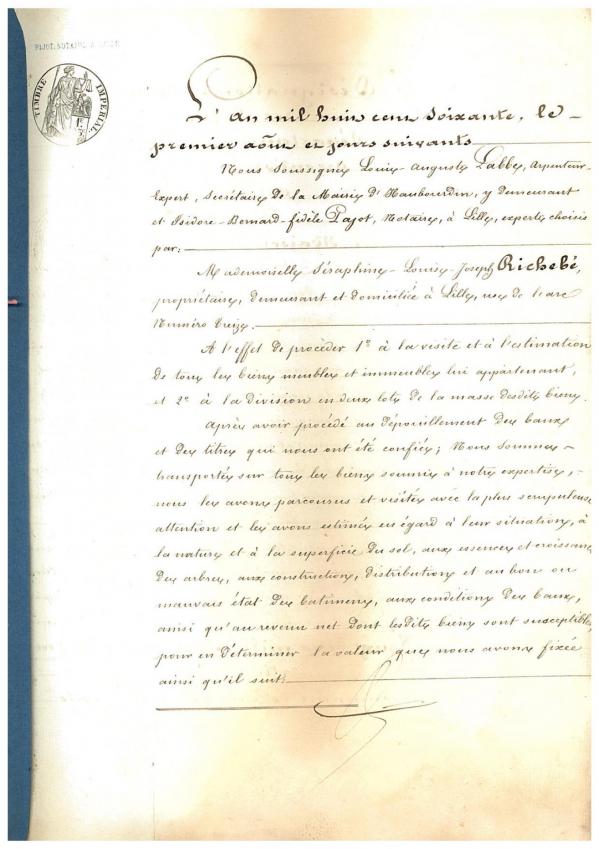 PAJOT, NOTAIRE A LILLE
TIMBRE IMPERIAL
L'an mil huit cent soixante, le
premier août et jours suivants
Nous soussignés Louis-Auguste Labbe, Arpenteur-
Expert, Secrétaire de la Mairie d'Haubourdin, y demeurant
et Isidore-Bernard-fidèle Pajot, Notaire, à Lille, experts choisis
par:
Mademoiselle Séraphine-Louise-Joseph Richebé,
propriétaire, demeurant et domiciliée à Lille, rue de l'arc
Numéro treize.
A l'effet de procéder 1º à la visite et à l'estimation
de tous les biens meubles et immeubles lui appartenant,
et 2º à la division en deux lots de la masse desdits biens.
Après avoir procédé au dépouillement des baux
et des titres qui nous ont été confiés; Nous sommes
transportés sur tous les biens soumis à notre expertise,
nous les avons parcourus et visités avec la plus scrupuleuse
attention et les avons estimés eu égard à leur situation, à
la nature et à la superficie du sol, aux essences et croissance
des arbres, aux constructions, distributions et au bon ou
mauvais état des batimens, aux conditions des baux,
ainsi qu'au revenu net dont lesdits biens sont susceptibles,
pour en déterminer la valeur que nous avons fixée
ainsi qu'il suit: